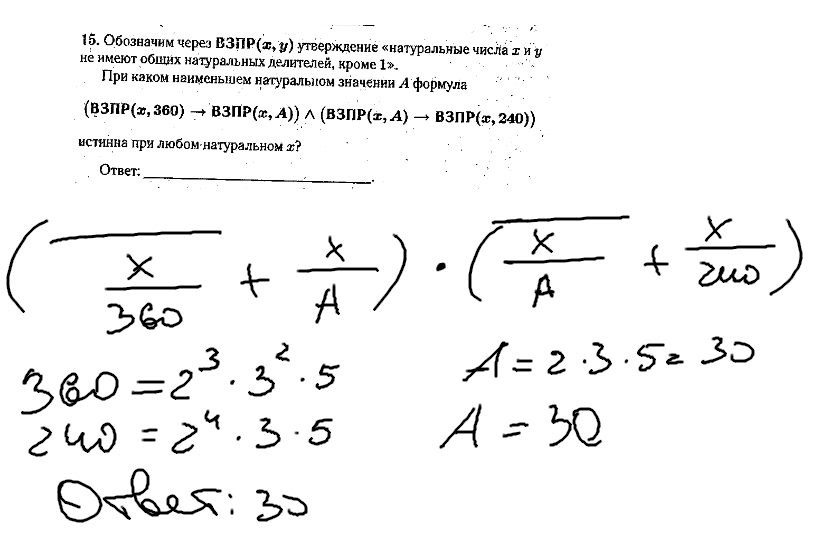 15. Обозначим через ВЗПР(x, y) утверждение «натуральные числа x и y
не имеют общих натуральных делителей, кроме 1».
При каком наименьшем натуральном значении A формула
(ВЗПР(x, 360) → ВЗПР(x, A)) ∧ (ВЗПР(x, A) → ВЗПР(x, 240))
истинна при любом натуральном x?
Ответ: ____________________.
( \overline{x/360} + x/A ) · ( \overline{x/A} + x/240 )
360 = 2³ · 3² · 5
A = 2 · 3 · 5 = 30
240 = 2⁴ · 3 · 5
A = 30
Ответ: 30